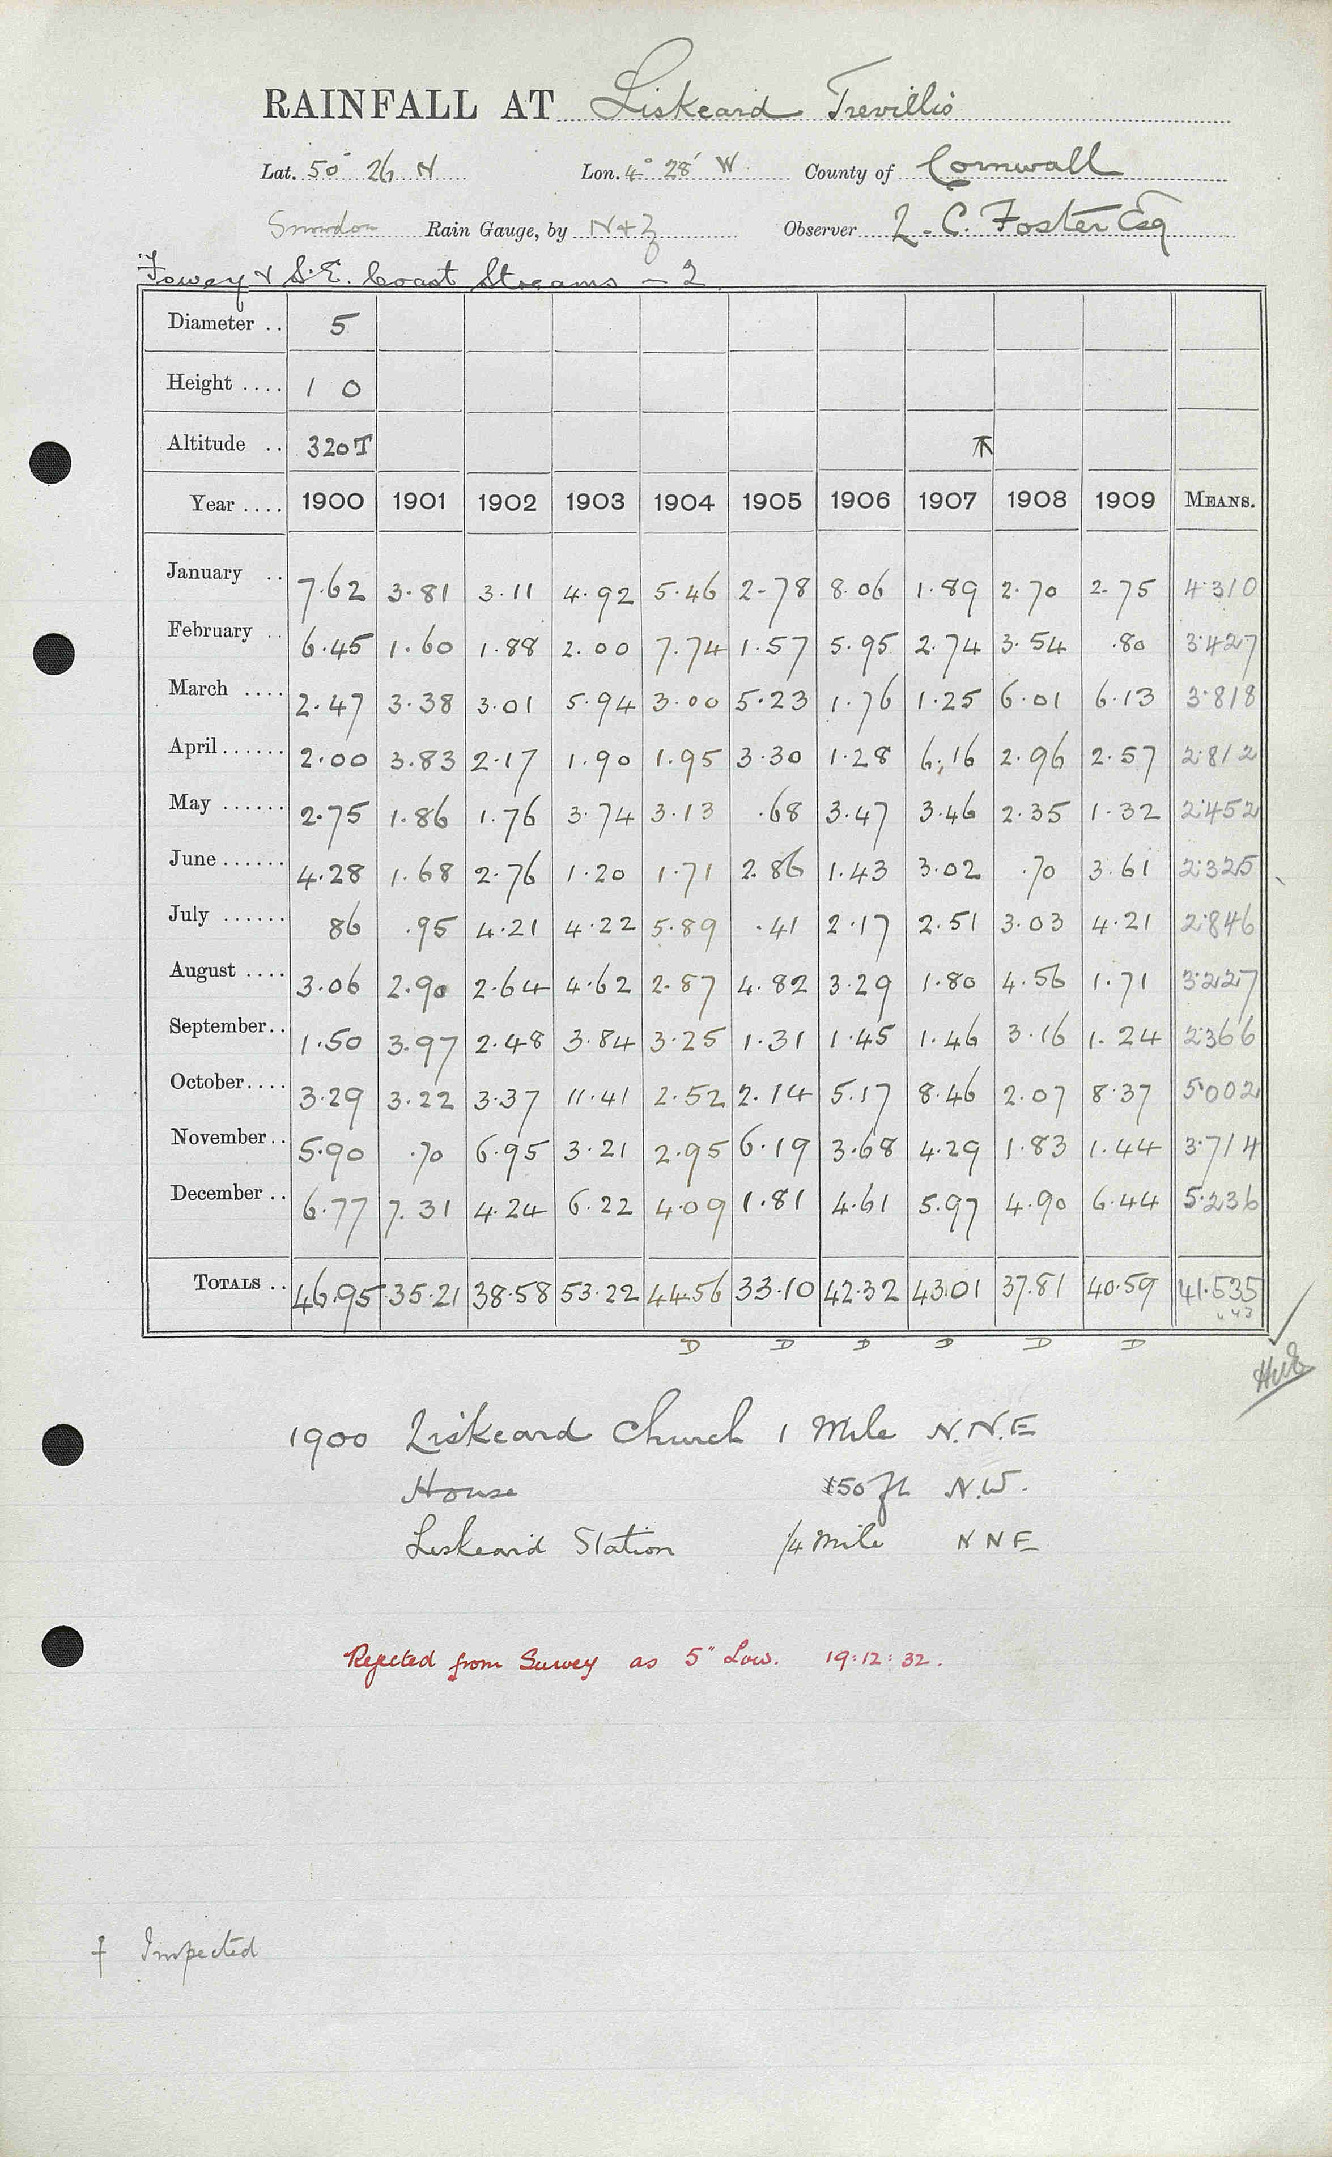 RAINFALL AT Liskeard Trevillis
Lat. 50° 26 N Lon. 4° 28' W. County of Cornwall
Snowdon Rain Gauge, by N+Z Observer L. C. Foster Esq
Fowey & S.E. Coast Streams - 2
Diameter .. 5
Height .... 1 0
Altitude .. 320T
Year .... 1900 1901 1902 1903 1904 1905 1906 1907 1908 1909 MEANS.
January .. 7.62 3.81 3.11 4.92 5.46 2.78 8.06 1.89 2.70 2.75 4.310
February .. 6.45 1.60 1.88 2.00 7.74 1.57 5.95 2.74 3.54 .80 3.427
March .... 2.47 3.38 3.01 5.94 3.00 5.23 1.76 1.25 6.01 6.13 3.818
April ...... 2.00 3.83 2.17 1.90 1.95 3.30 1.28 6.16 2.96 2.57 2.812
May ...... 2.75 1.86 1.76 3.74 3.13 .68 3.47 3.46 2.35 1.32 2.452
June ...... 4.28 1.68 2.76 1.20 1.71 2.86 1.43 3.02 .70 3.61 2.325
July ...... 86 .95 4.21 4.22 5.89 .41 2.17 2.51 3.03 4.21 2.846
August .... 3.06 2.90 2.64 4.62 2.87 4.82 3.29 1.80 4.56 1.71 3.227
September.. 1.50 3.97 2.48 3.84 3.25 1.31 1.45 1.46 3.16 1.24 2.366
October.... 3.29 3.22 3.37 11.41 2.52 2.14 5.17 8.46 2.07 8.37 5.002
November.. 5.90 .70 6.95 3.21 2.95 6.19 3.68 4.29 1.83 1.44 3.714
December .. 6.77 7.31 4.24 6.22 4.09 1.81 4.61 5.97 4.90 6.44 5.236
TOTALS .. 46.95 35.21 38.58 53.22 44.56 33.10 42.32 43.01 37.81 40.59 41.535
D D D D D D
1900 Liskeard Church 1 Mile N.N.E
House 150 ft N.W.
Liskeard Station 1/4 mile N N E
Rejected from Survey as 5" Low. 19:12:32.
Inspected